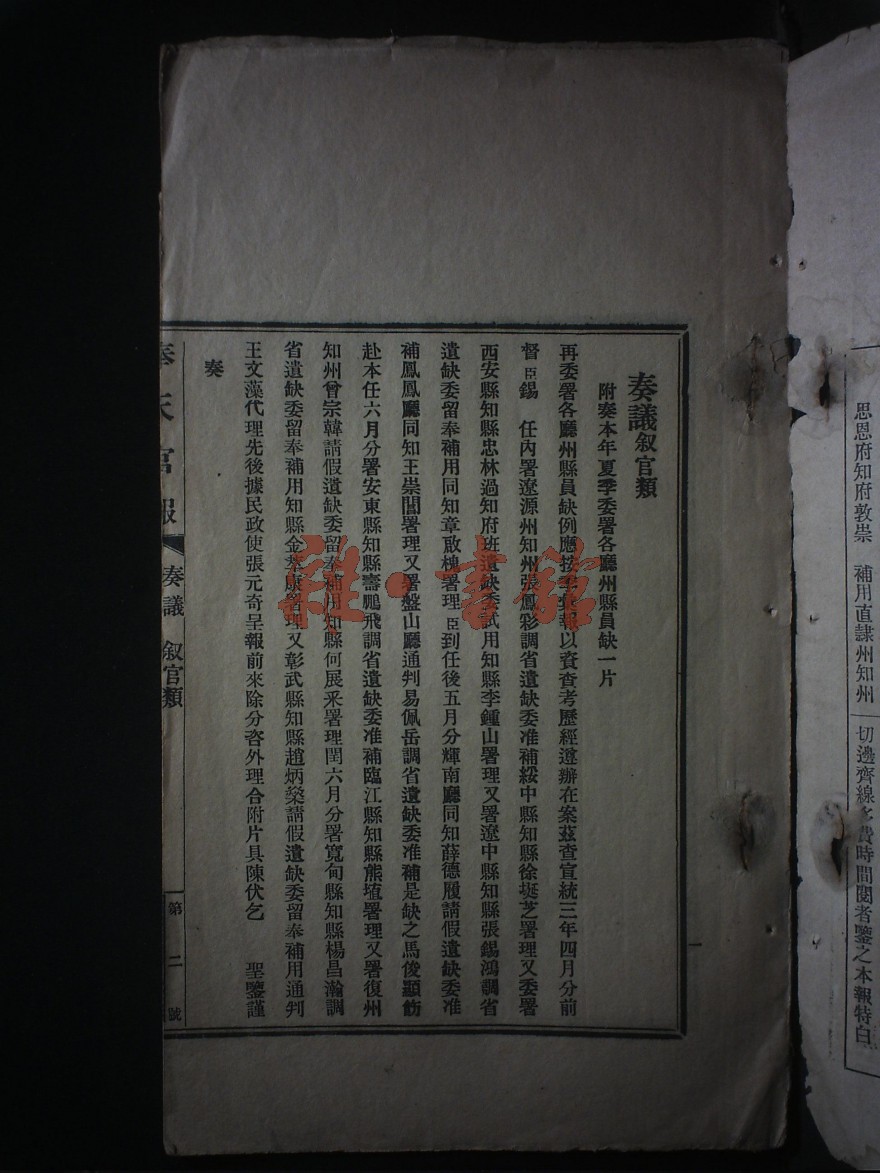 思恩府知府敦崇　補用直隸州知州
切邊齊線多費時間閱者鑒之本報特白
奏議 叙官類
附奏本年夏季委署各廳州縣員缺一片
再委署各廳州縣員缺例應按季彙報以資查考歷經遵辦在案茲查宣統三年四月分前
督臣錫　任內署遼源州知州張鳳彩調省遺缺委准補綏中縣知縣徐埏芝署理又委署
西安縣知縣忠林過知府班遺缺委試用知縣李鍾山署理又署遼中縣知縣張錫鴻調省
遺缺委留奉補用同知章啟槐署理臣到任後五月分輝南廳同知薛德履請假遺缺委准
補鳳凰廳同知王崇闓署理又署盤山廳通判易佩岳調省遺缺委准補是缺之馬俊顯飭
赴本任六月分署安東縣知縣壽鵬飛調省遺缺委准補臨江縣知縣熊埴署理又署復州
知州曾宗韓請假遺缺委留奉補用知縣何展釆署理閏六月分署寬甸縣知縣楊昌瀚調
省遺缺委留奉補用知縣金萃康署理又彰武縣知縣趙炳燊請假遺缺委留奉補用通判
王文藻代理先後據民政使張元奇呈報前來除分咨外理合附片具陳伏乞　聖鑒謹
奏
奉天官報　奏議　叙官類　第二號
雜·書館